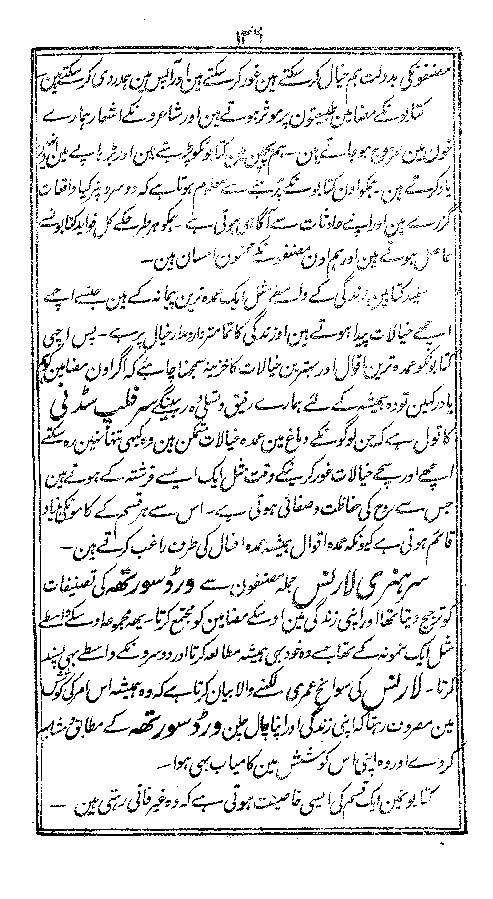 ۱۳۶
مصنفونکی بدولت ہم خیال کرسکتے ہین غور کرسکتے ہین اور آپس مین ہمدردی کرسکتے ہین
کتابونکے مضامین طبیعتون پر موثر ہوتے ہین اور شاعرونکے اشعار ہمارے
خون مین ممزوج ہوجاتے ہین۔ ہم بچپن مین کتابونکو پڑہتے ہین اور بڑہاپے مین انہین
یاد کرتے ہین۔ ہمکو اون کتابونکے پڑہنے سے معلوم ہوتا ہے کہ دوسرونپر کیا واقعات
گزرے ہین اور اپنے حادثات سے آگاہی ہوتی ہے۔ ہمکو ہر طرحکے کل فواید کتابونسے
حاصل ہوتے ہین اور ہم اون مصنفونکے ممنون احسان ہین۔
مفید کتابین زندگی کے واسطے مثل ایک عمدہ ترین پیمانہ کے ہین جنسے اچھے
اچھے خیالات پیدا ہوتے ہین اور زندگی کا تمامتر دارومدار خیال پر ہے۔ پس اچھی
کتابونکو عمدہ ترین اقوال اور بہترین خیالات کا خزینہ سمجھنا چاہئے کہ اگر اون مضامین کو ہم
یاد رکہین تو وہ ہمیشہ کے لئے ہمارے رفیق و تسلی دہ رہینگے سر فلپ سڈنی
کا قول ہے کہ جن لوگونکے دماغ مین عمدہ خیالات متمکن ہین وہ کبھی تنہا نہین رہ سکتے
اچھے اور سچے خیالات غور کرنیکے وقت مثل ایک ایسے فرشتہ کے ہوتے ہین
جس سے روح کی حفاظت و صفائی ہوتی ہے۔ اس سے ہر قسم کے کامونکی بنیاد
قائم ہوتی ہے کیونکہ عمدہ اقوال ہمیشہ عمدہ افعال کی طرف راغب کراتے ہین۔
سر ہنری لارنس جملہ مصنفون سے ورڈسورتھہ کی تصنیفات
کو ترجیح دیتا تھا اور اپنی زندگی مین اوسکے مضامین کو مجتمع کرتا۔ یہہ مجموعہ اوسکے واسطے
مثل ایک نمونہ کے تھا جسے وہ خود بھی ہمیشہ مطالعہ کرتا اور دوسرونکے واسطے بھی پسند
کرتا۔ لارنس کی سوانح عمری لکھنے والا بیان کرتا ہے کہ وہ ہمیشہ اس امر کی کوشش
مین مصروف رہتا کہ اپنی زندگی اور اپنا چال چلن ورڈسورتھہ کے مطابق مشابہ
کردے اور وہ اپنی اس کوشش مین کامیاب بھی ہوا۔
کتابونمین ایک قسم کی ایسی خاصیت ہوتی ہے کہ وہ غیرفانی رہتی ہین —